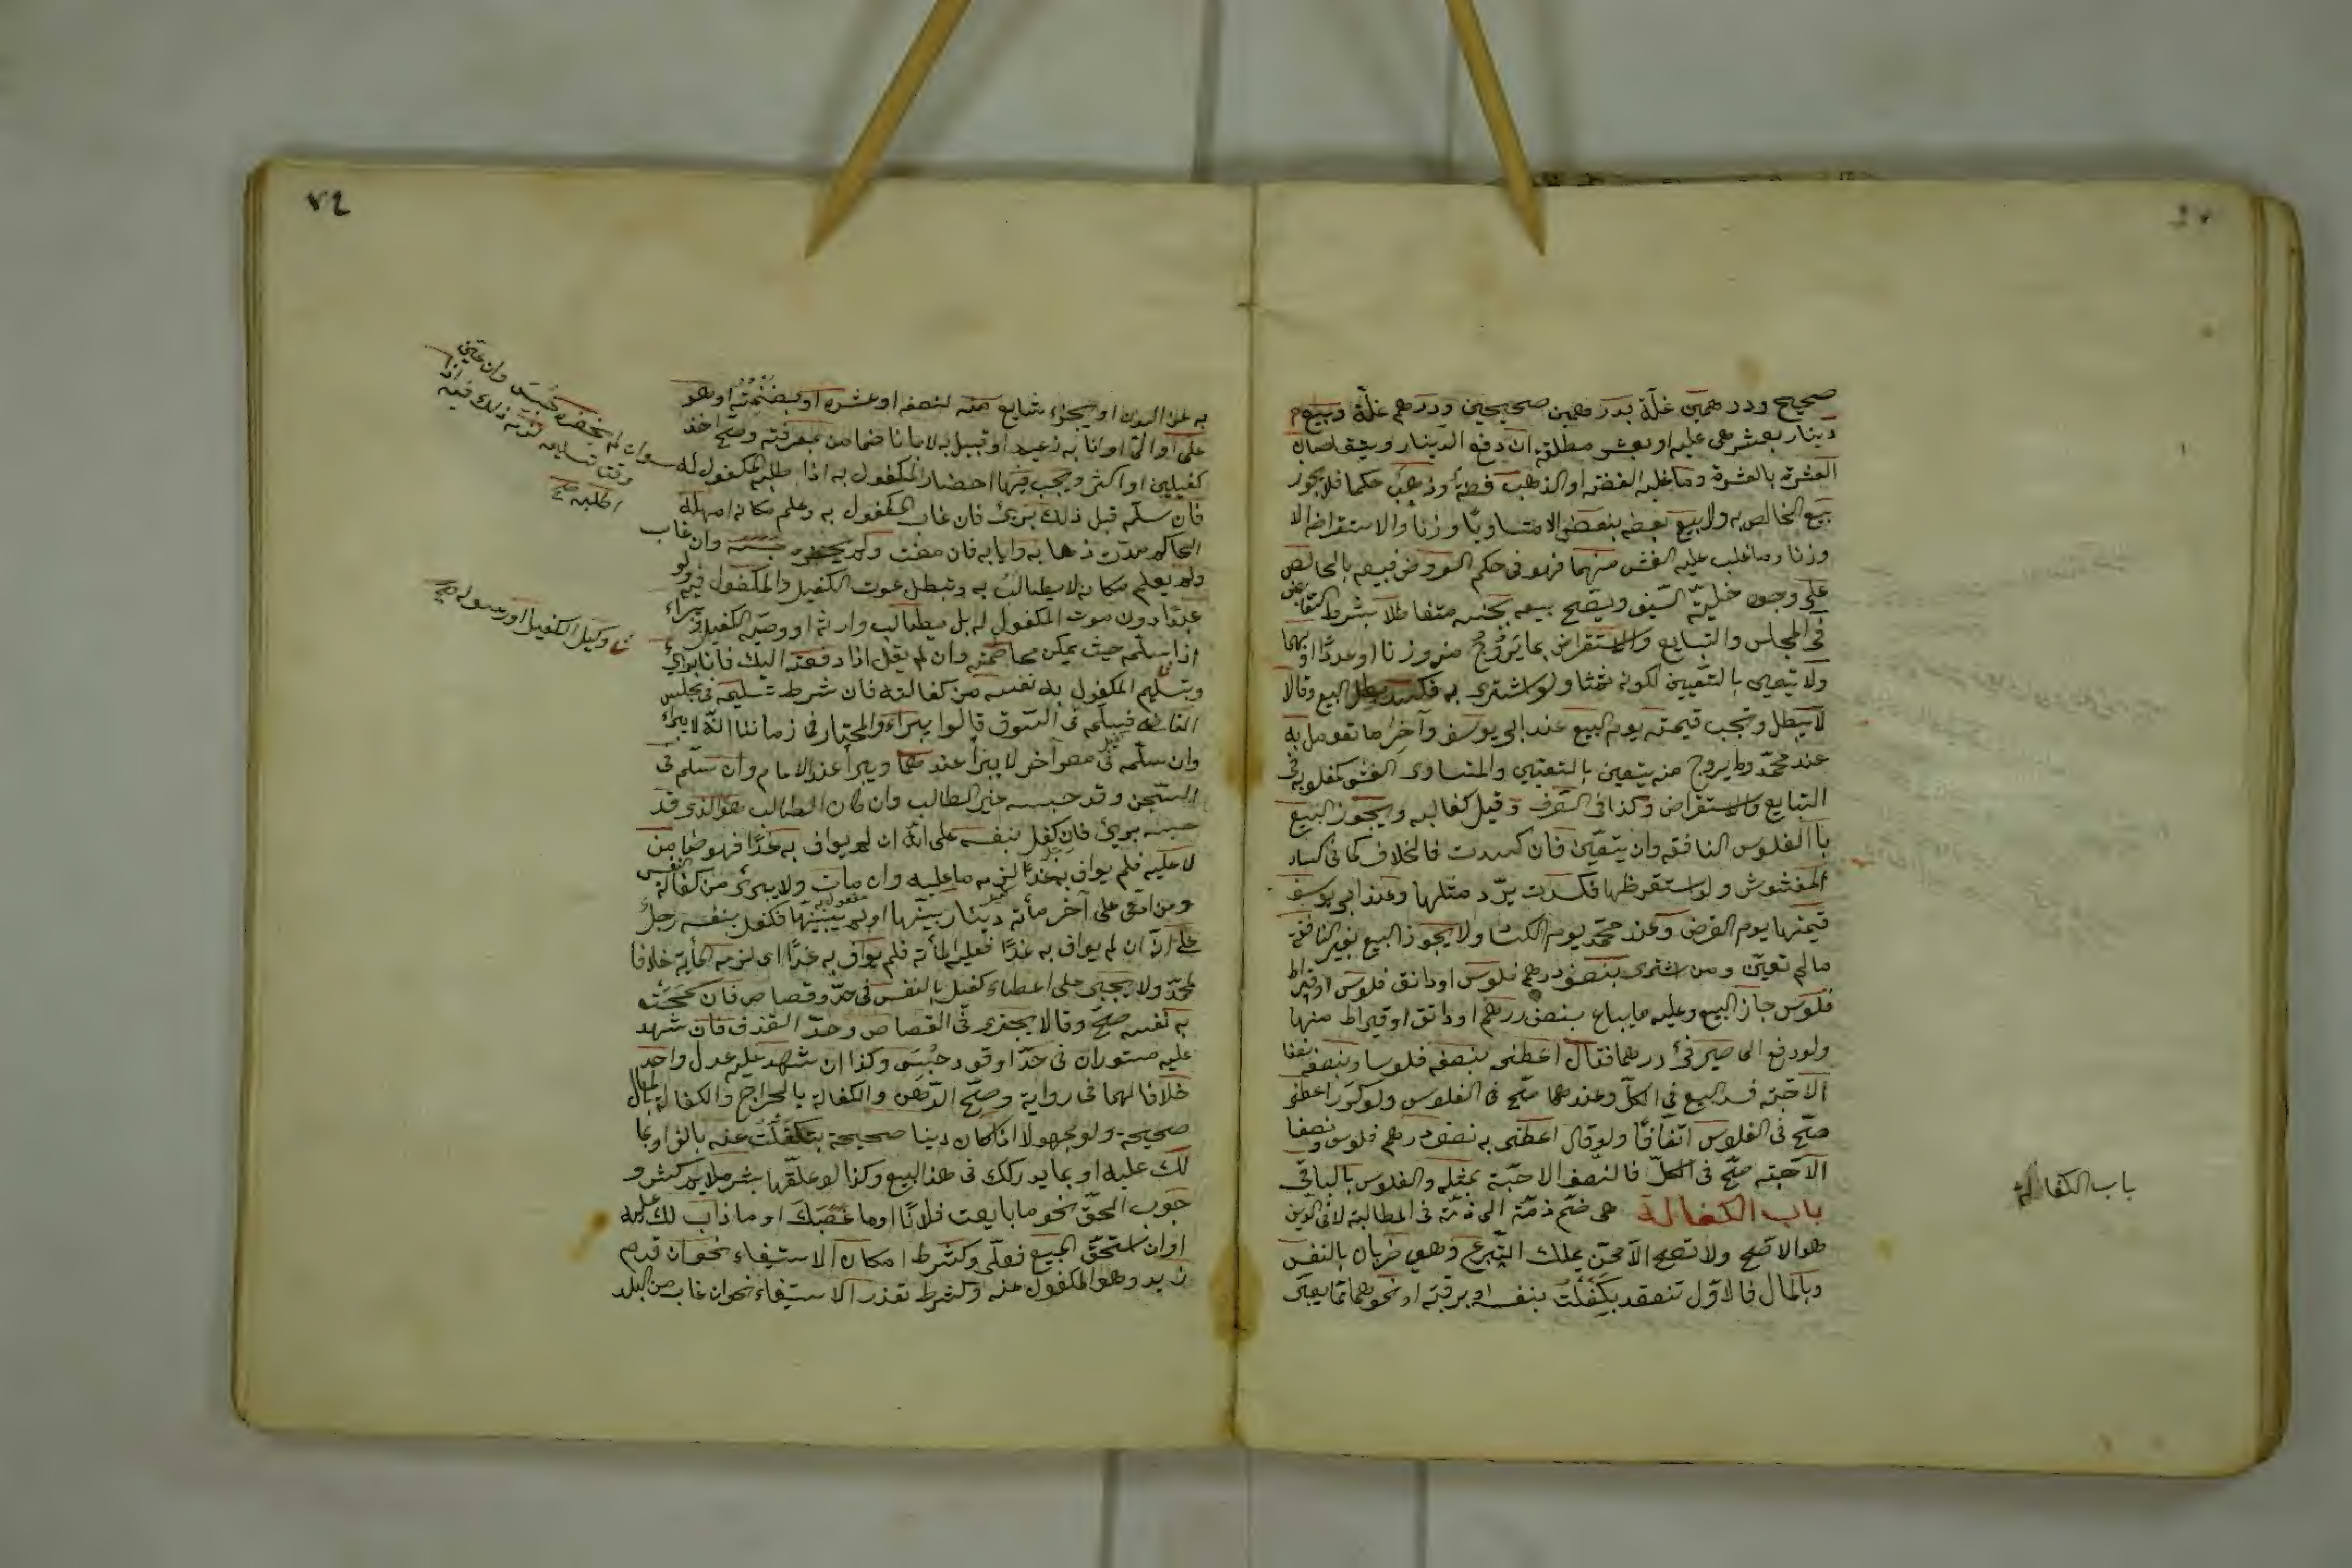 صحيح ودرهمين غلّة بدرهمين صحيحين ودرهم غلّة وبيع
دينار بعشرة هي عليه او بعشرة مطلقة ان دفع الدينار ويتقاصان
العشرة بالعشرة وما غلبه الفضة او الذهب فضة وذهب حكما فلا يجوز
بيع الخالص به ولا بيع بعضه ببعض الا متساويا وزنا والاستقراض الا
وزنا وما غلب عليه الغش منهما فهو في حكم العروض فبيعه بالخالص
على وجوه حلية السيف ويصح بيعه بجنسه متفاضلا بشرط التقابض
في المجلس والتبايع والاستقراض بما يروج منه وزنا او عددا او بهما
ولا يتعين بالتعيين لكونه ثمنا ولو اشترى به فكسد بطل البيع وقالا
لا يبطل وتجب قيمته يوم البيع عند ابي يوسف وآخر ما تعومل به
عند محمّد وما لا يروج منه يتعين بالتعيين والمتساوى الغش كمغلوبه في
التبايع والاستقراض وكذا في الصرف وقيل كغالبه ويجوز البيع
با الفلوس النافقة وان لم يتعين فان كسدت فالخلاف كما في كساد
المغشوش ولو استقرضها فكسدت يردّ مثلها وعند ابي يوسف
قيمتها يوم القرض وعند محمّد يوم الكساد ولا يجوز البيع بغير النافقة
مالم تعين ومن اشترى بنصف درهم فلوس او دانق فلوس او قيراط
فلوس جاز البيع وعليه ما يباع بنصف درهم او دانق او قيراط منها
ولو دفع الى صيرفي درهما فقال اعطني بنصفه فلوسا وبنصفه نصفا
الا حبّة فسد البيع في الكلّ وعندهما صحّ في الفلوس ولو كرّر اعطني
صحّ في الفلوس اتّفاقا ولو قال اعطني به نصف درهم فلوس ونصفا
الا حبّة صحّ في الكلّ فالنصف الا حبّة بمثله والفلوس بالباقي
باب الكفالة هي ضمّ ذمّة الى ذمّة في المطالبة لا في الدين
هو الاصح ولا تصح الا ممّن يملك التبرع وهي ضربان بالنفس
وبالمال فالاوّل تنعقد بكفلت بنفسه او برقبته او نحوهما ممّا يعبر
باب الكفالة
٧٤
به عن البدن او بجزء شايع منه كنصفه او عشره او بضمنته او هو
على او الىّ او انا به زعيم او قبيل به لا بانا ضامن بمعرفته وصح اخذ
كفيلين او اكثر ويجب فيها احضار المكفول به اذا طلبه المكفول له
فان سلّمه قبل ذلك برئ فان غاب المكفول به وعلم مكانه امهله
الحاكم مدّت ذهابه وايابه فان مضت ولم يحضره حبسه وان غاب
ولم يعلم مكانه لا يطالب به وتبطل بموت الكفيل والمكفول به ولو
عبدا دون موت المكفول له بل يطالب وارثه او وصيه الكفيل ويبراء
اذا سلّمه حيث يمكن مخاصمته وان لم يقل اذا دفعته اليك فانا برئ
وبتسليم المكفول به نفسه من كفالته فان شرط تسليمه في مجلس
القاضى فسلّمه في السّوق قالوا يبراء والمختار في زماننا انّه لا يبراء
وان سلّمه في مصر آخر لا يبرأ عندهما ويبرأ عند الامام وان سلّمه في
السّجن وقد حبسه غير الطالب وان كان الطالب هو الذى قد
حبسه برئ فان كفل بنفسه على انّه ان لم يواف به غدا فهو ضامن
لما عليه فلم يواف به غدا لزمه ما عليه وان مات ولا يبرئ من كفالة النفس
ومن ادّعى على آخر مأته دينار بيّنها او لم يبيّنها فكفل بنفسه رجل
على انّه ان لم يواف به غدا فعليه المأته فلم يواف به غدا اى لزمه المأية خلافا
لمحمّد ولا يجبر على اعطاء كفيل بالنفس في حدّ وقصاص فان سمحت
به نفسه صحّ وقالا يجبر في القصاص وحدّ القذف فان شهد
عليه مستوران في حدّ او قود حبس وكذا ان شهد عليه عدل واحد
خلافا لهما في رواية وصحّ الرّهن والكفالة بالخراج والكفالة بالمال
صحيحة ولو مجهولا اذا كان دينا صحيحا بتكفّلت عنه بالف او بما
لك عليه او بما يدركك في هذا البيع وكذا لو علّقها بشرط ملايم كشرط و
جوب الحقّ نحو ما بايعت فلانا او ما غصبك او ما ذاب لك عليه
او ان استحقّ المبيع فعلىّ وكشرط امكان الاستيفاء نحو ان قدم
زيد وهو المكفول عنه وكشرط تعذر الاستيفاء نحو ان غاب من البلد
وكيل الكفيل او رسوله صح